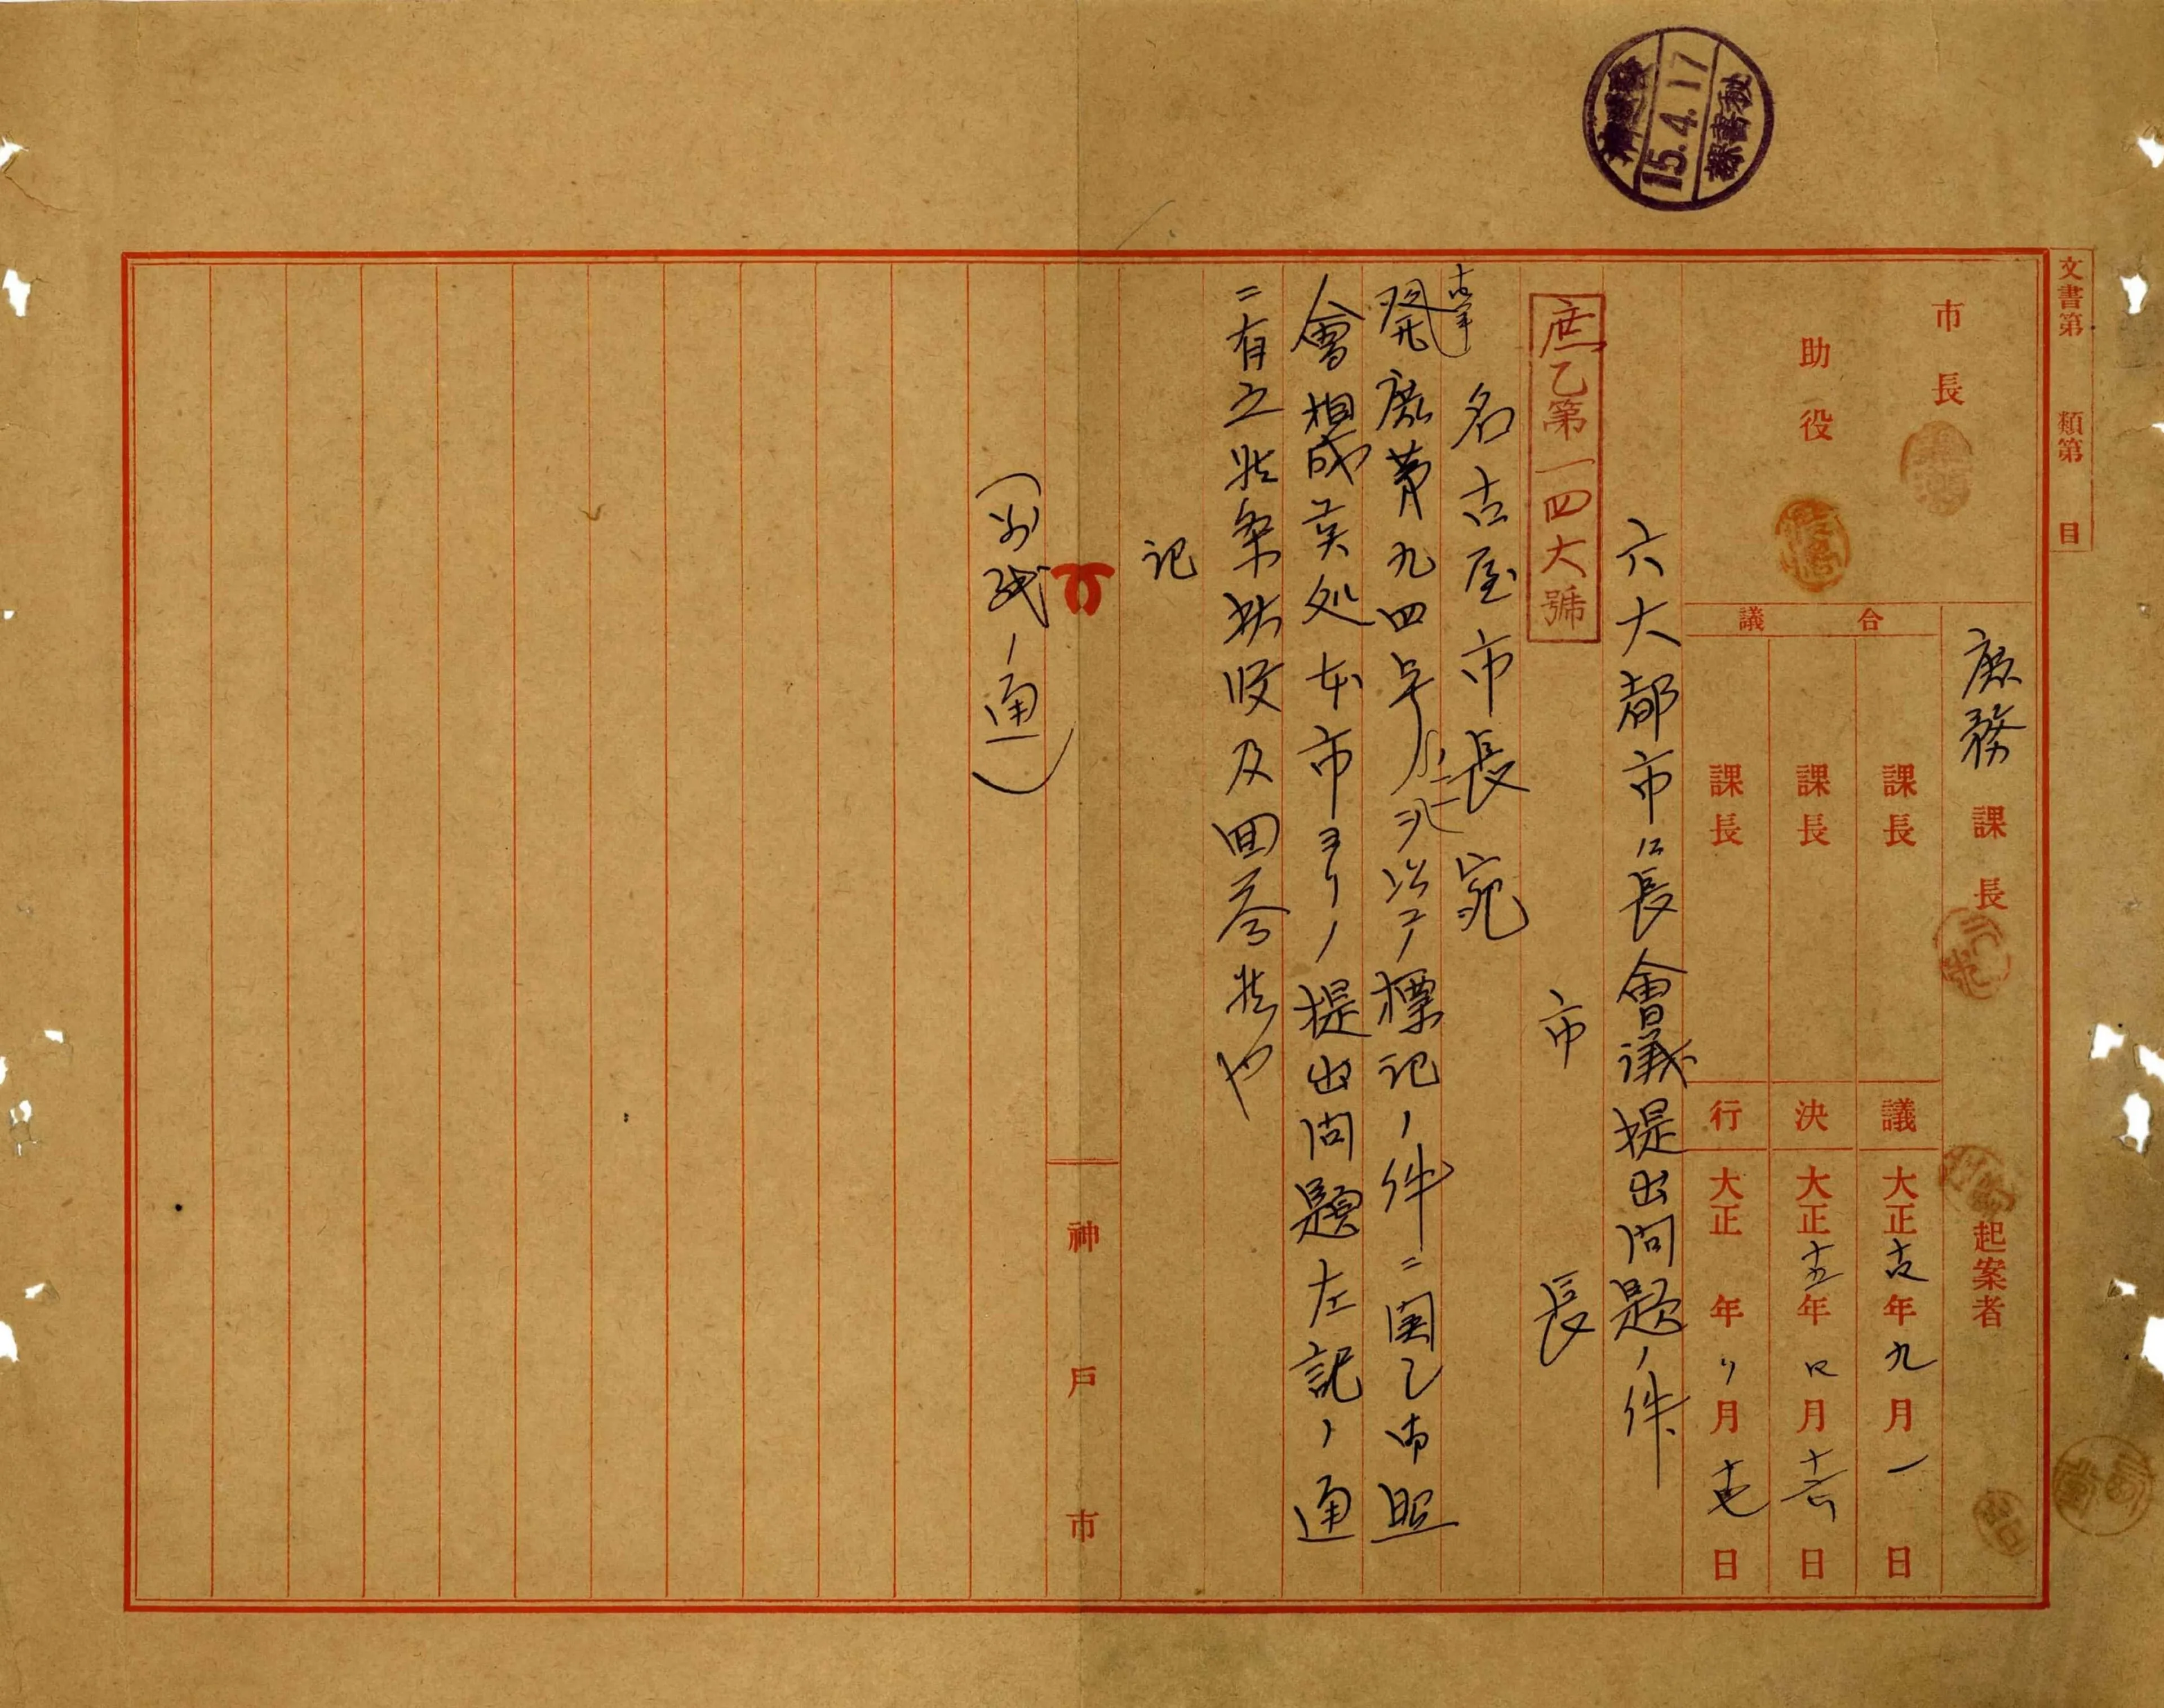 15.4.17
文書第 類第 目
市長
助役
庶務課長
起案者
合議
課長
課長
課長
議 大正十五年九月一日
決 大正十五年四月十六日
行 大正 年〃月十七日
六大都市々長會議提出問題ノ件
庶乙第一四六號
市長
名古屋市長宛
發庶第九四号ヲ以テ標記ノ件ニ関シ御照
會相成候処本市ヨリノ提出問題左記ノ通
ニ有之候条御査収及回答候也
記
(別紙ノ通)
神戸市